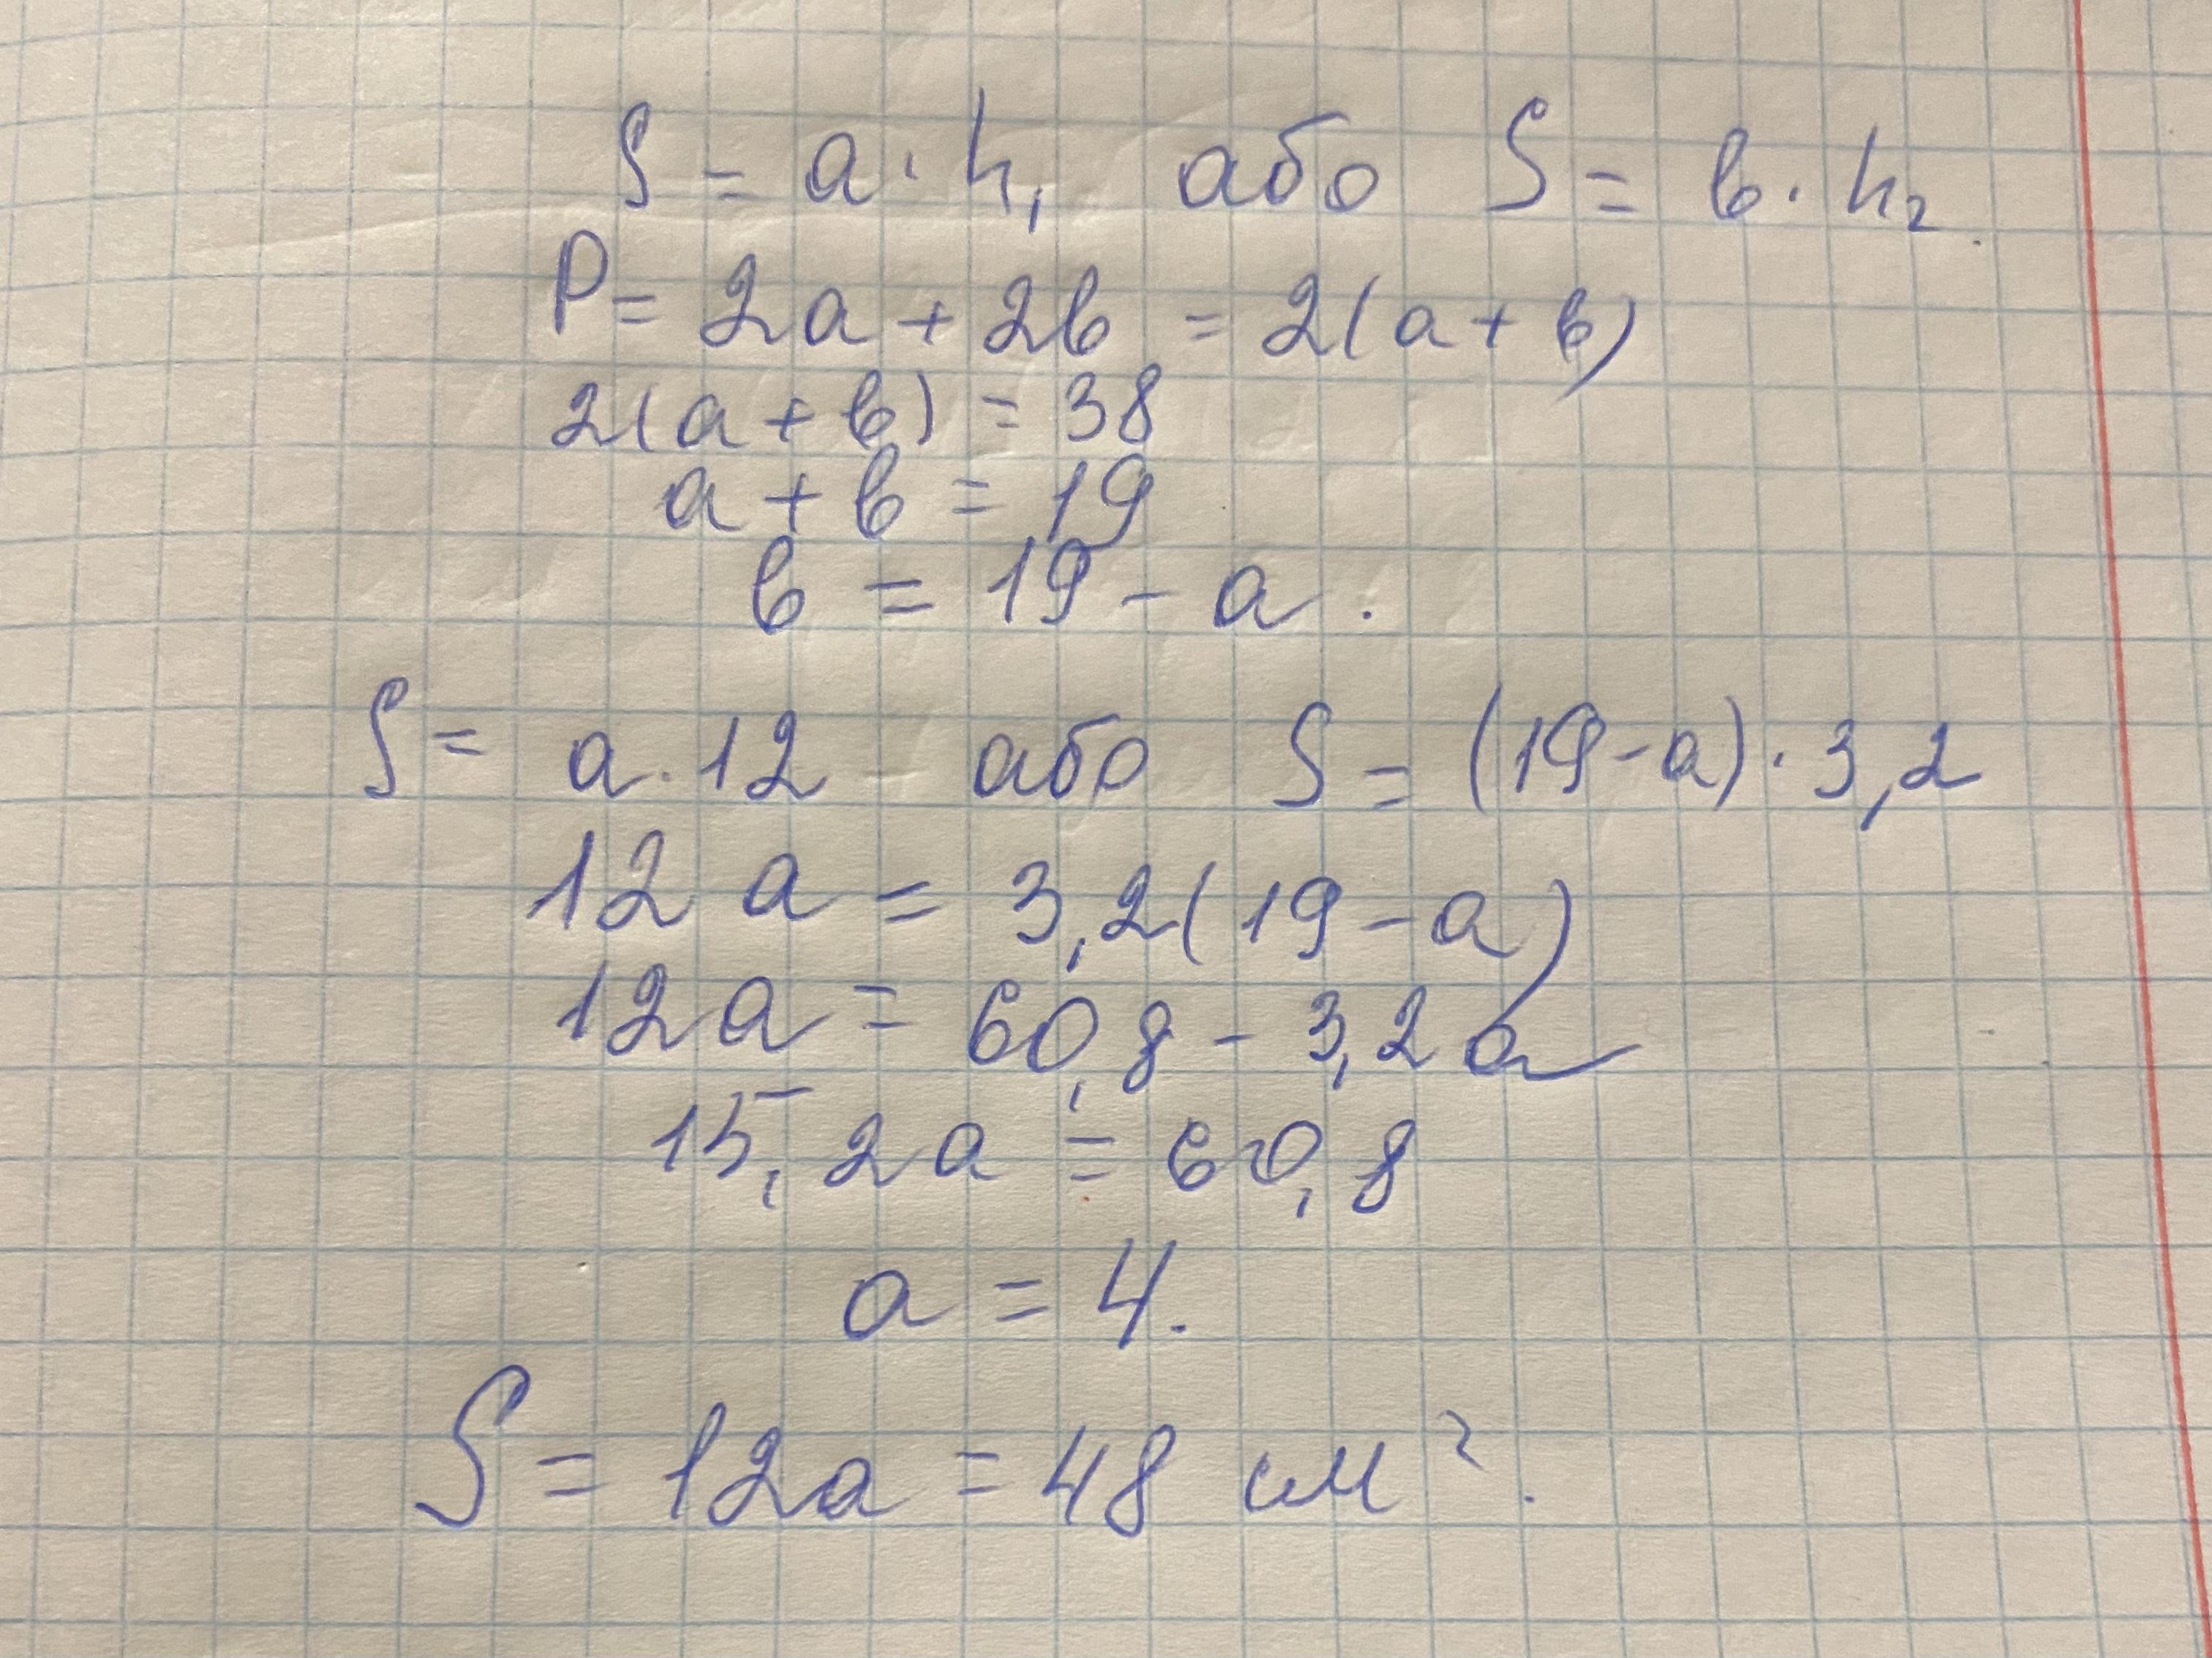 S = a · h₁ або S = b · h₂.
P = 2a + 2b = 2(a + b)
2(a + b) = 38
a + b = 19
b = 19 - a.
S = a · 12 або S = (19 - a) · 3,2
12 a = 3,2(19 - a)
12a = 60,8 - 3,2a
15,2a = 60,8
a = 4.
S = 12a = 48 см².